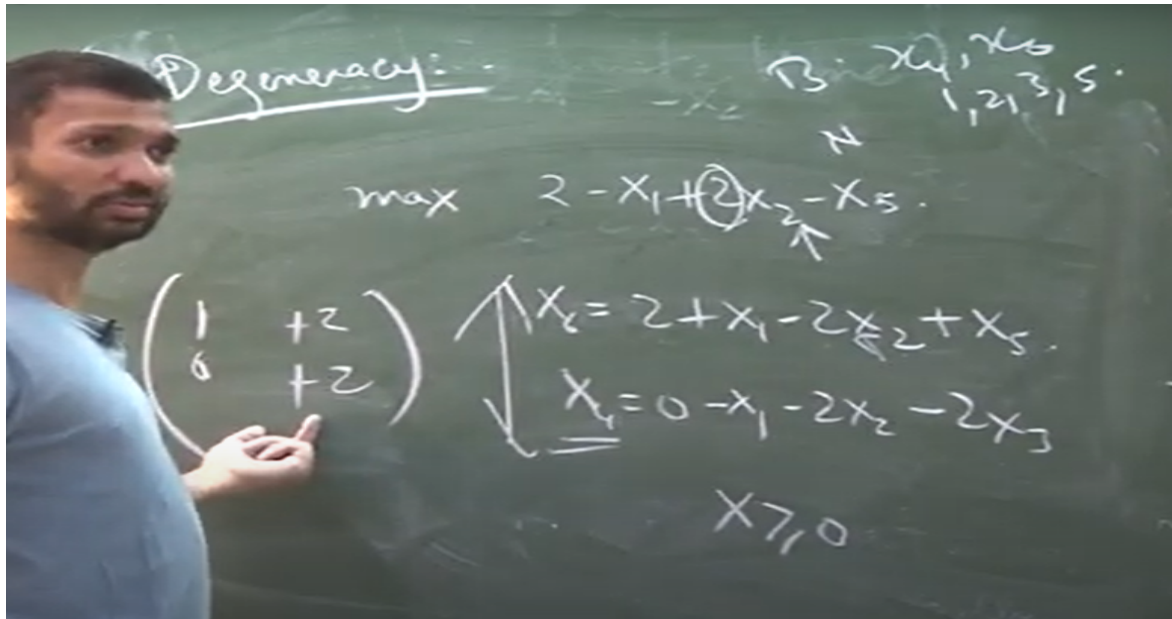 Degeneracy:
B: x₄, x₆
1, 2, 3, 5.
-x₂
N
max 2 - x₁ + 2x₂ - x₅.
1 +2
0 +2
x₆ = 2 + x₁ - 2x₂ + x₅.
x₄ = 0 - x₁ - 2x₂ - 2x₃
x ≥ 0